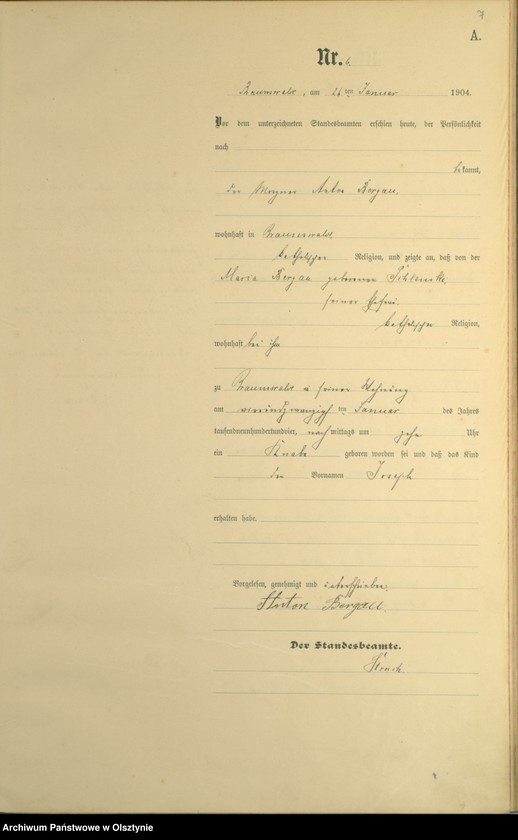 7
A.
Nr. 6
Braunswalde, am 26 ten Januar 1904.
Vor dem unterzeichneten Standesbeamten erschien heute, der Persönlichkeit
nach
bekannt,
der Anton Bergau,
wohnhaft in Braunswalde
katholischer Religion, und zeigte an, daß von der
Maria Bergau geborenen
seiner Ehefrau
katholischer Religion,
wohnhaft bei ihm
zu Braunswalde in seiner Wohnung
am vierundzwanzigsten ten Januar des Jahres
tausendneunhundertundvier, nachmittags um zehn Uhr
ein Knabe geboren worden sei und daß das Kind
den Vornamen Joseph
erhalten habe.
Vorgelesen, genehmigt und unterschrieben
Anton Bergau
Der Standesbeamte.
Archiwum Państwowe w Olsztynie